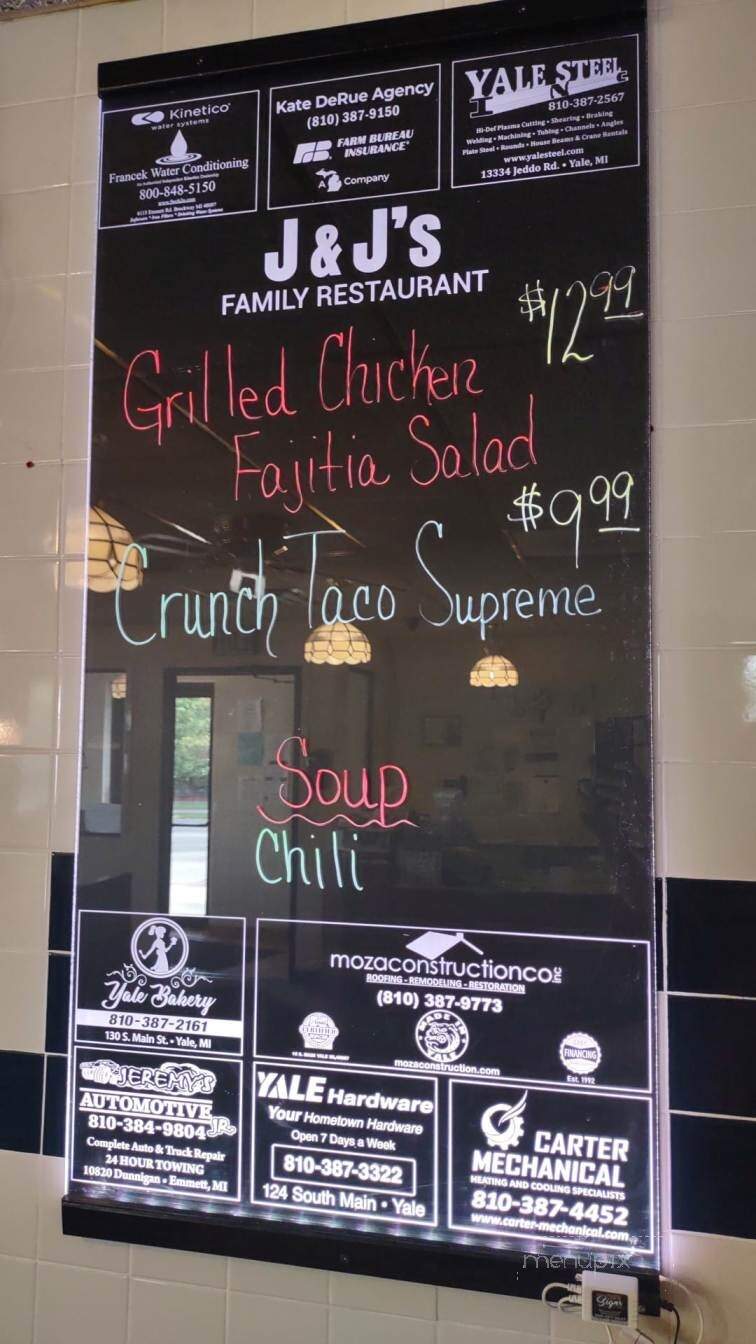 Kinetico
water systems
Francek Water Conditioning
800-848-5150
Kate DeRue Agency
(810) 387-9150
FB FARM BUREAU
INSURANCE
A Company
YALE STEEL
810-387-2567
Hi-Def Plasma Cutting • Shearing • Braking
Welding • Machining • Tubing • Channels • Angles
Plate Steel • Rounds • House Beams & Crane Rentals
www.yalesteel.com
13334 Jeddo Rd. • Yale, MI
J & J'S
FAMILY RESTAURANT
$12.99
Grilled Chicken
Fajitia Salad
$9.99
Crunch Taco Supreme
Soup
Chili
Yale Bakery
810-387-2161
130 S. Main St. • Yale, MI
mozaconstructionco inc
ROOFING - REMODELING - RESTORATION
(810) 387-9773
CERTIFIED
MADE IN YALE
FINANCING
mozaconstruction.com
Est. 1992
JEREMY'S
AUTOMOTIVE JR
810-384-9804
Complete Auto & Truck Repair
24 HOUR TOWING
10820 Dunnigan • Emmett, MI
YALE Hardware
Your Hometown Hardware
Open 7 Days a Week
810-387-3322
124 South Main • Yale
CARTER
MECHANICAL
HEATING AND COOLING SPECIALISTS
810-387-4452
www.carter-mechanical.com
menupix